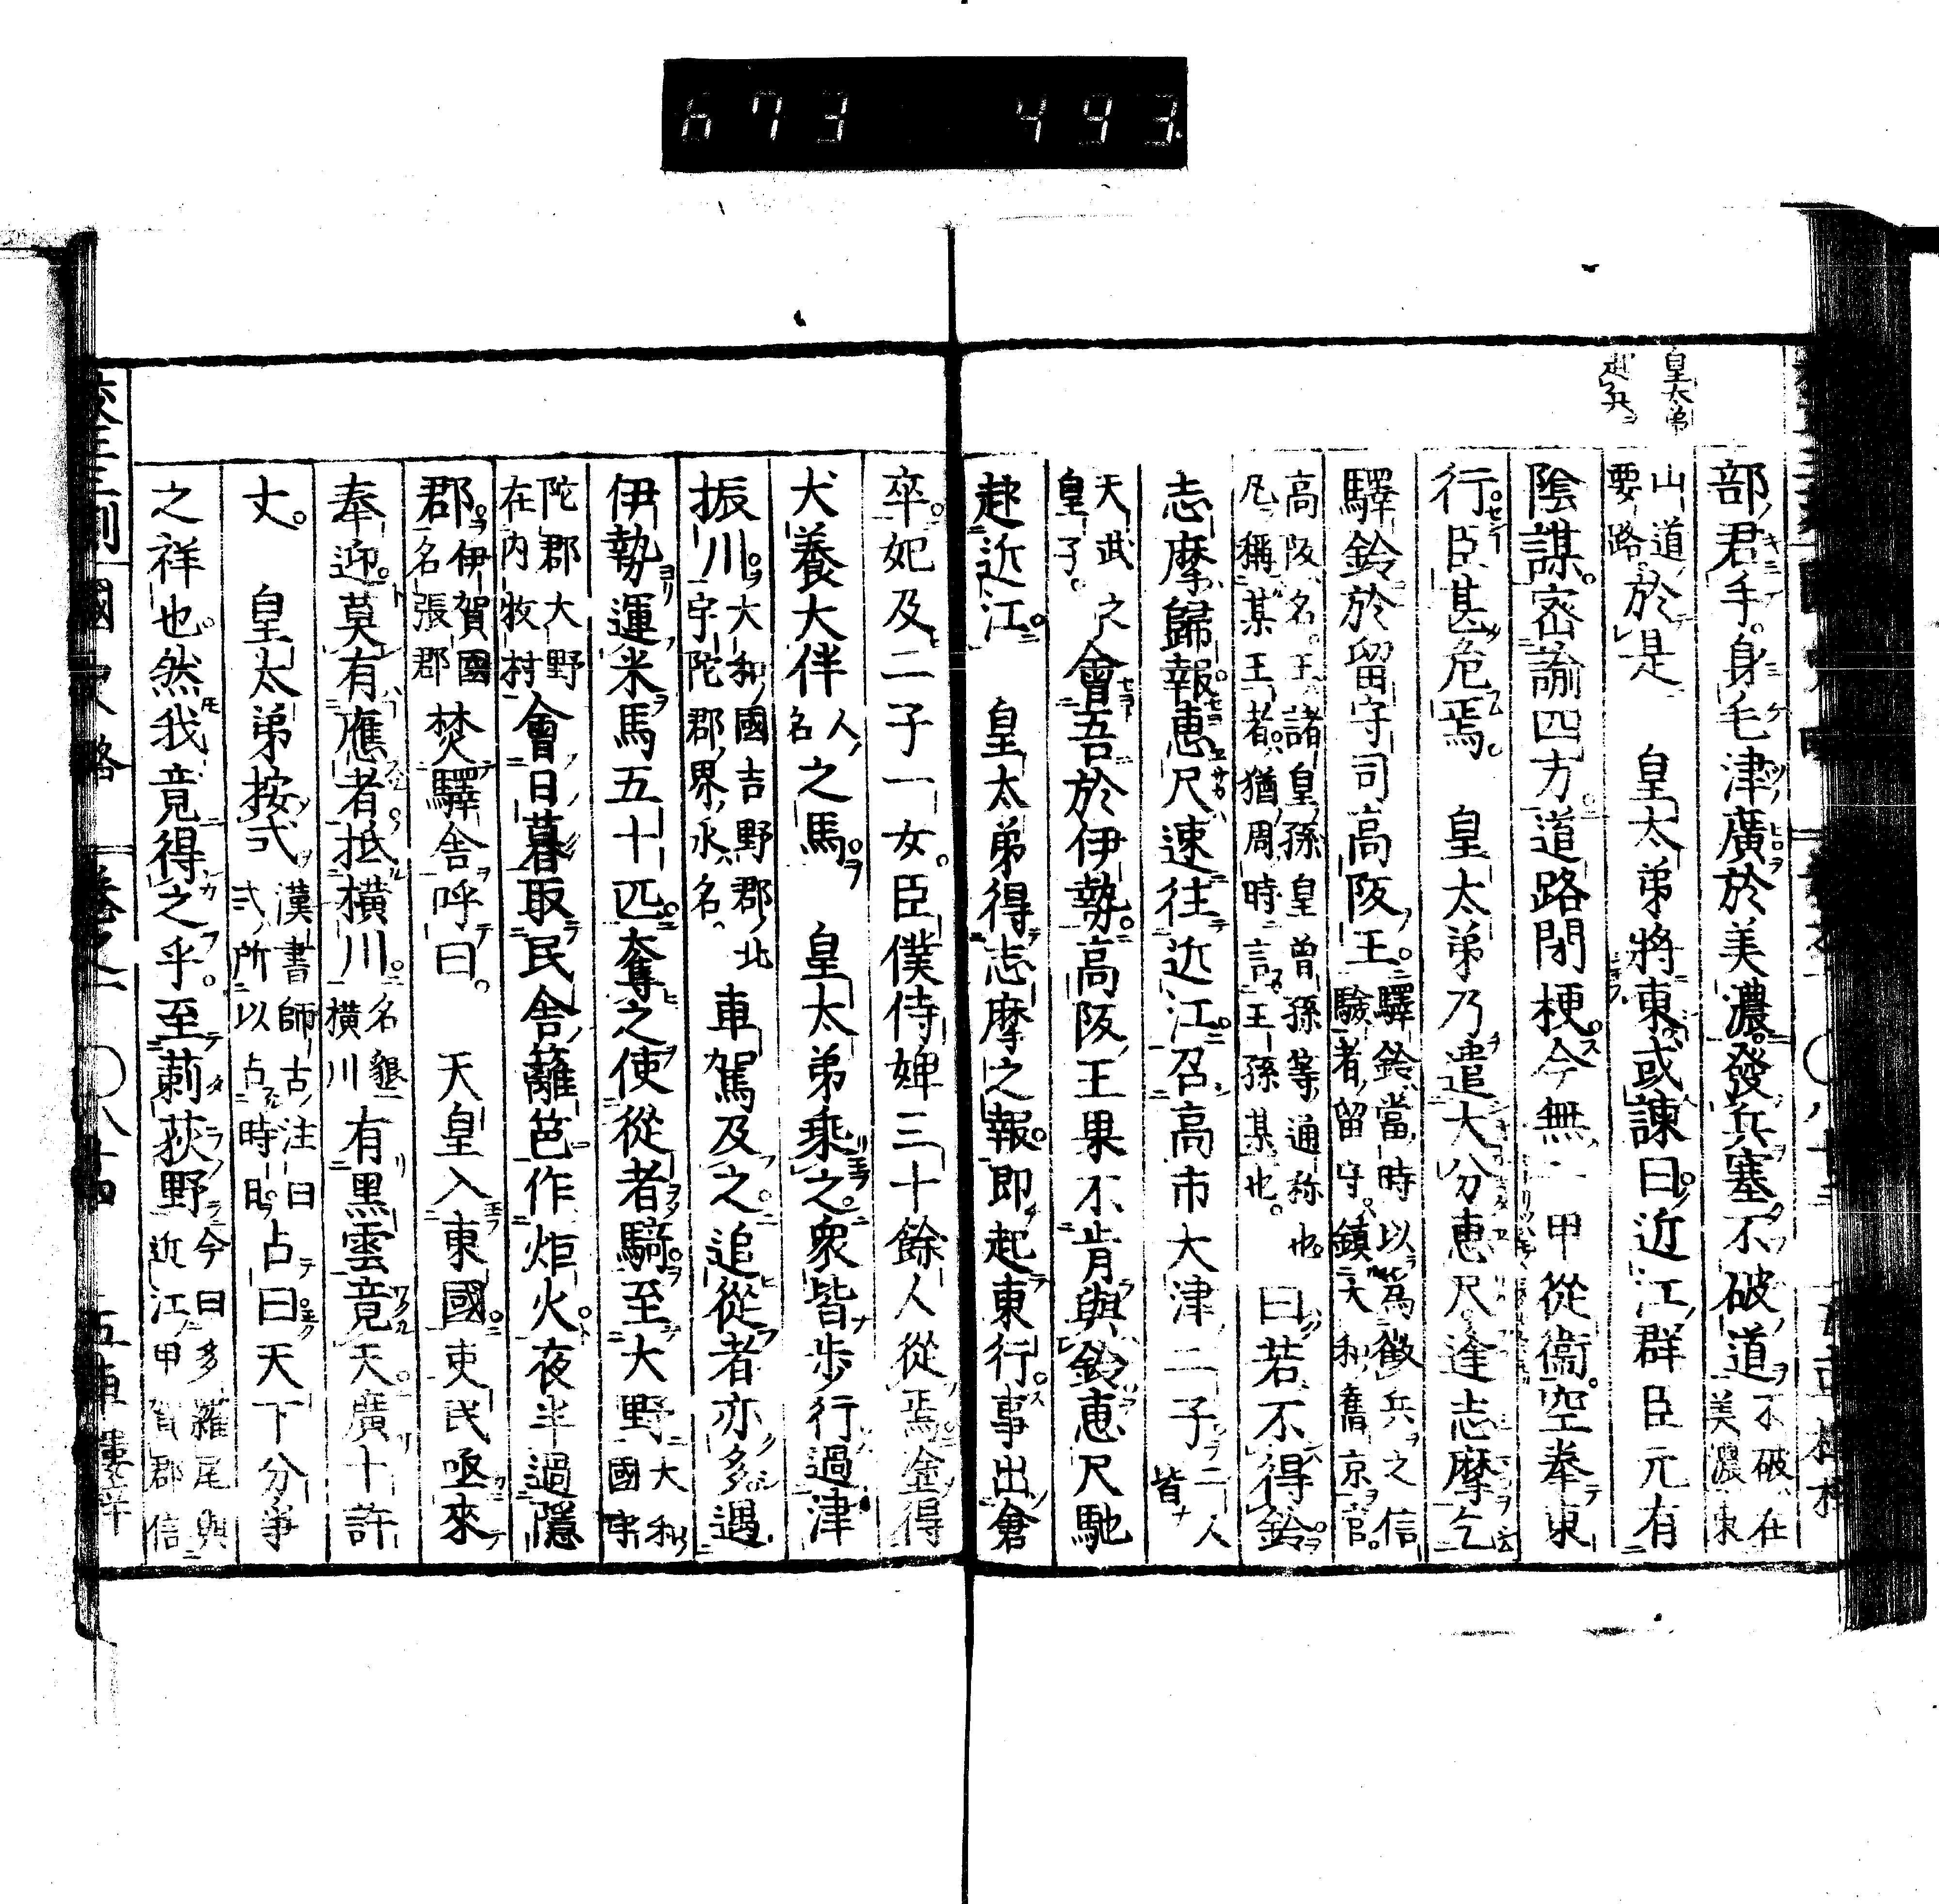 673 493
皇太弟
起兵
部君手身毛津廣於美濃發兵塞不破道不破在美濃東
山道要路於是　皇太弟將東或諫曰近江群臣元有
陰謀密諭四方道路閉梗今無一甲從衞空拳東
行臣甚危焉　皇太弟乃遣大分恵尺逢志摩乞
驛鈴於留守司高阪王驛鈴當時以爲徴兵之信驗者留守鎮大和舊京官
高阪名王諸皇孫皇曾孫等通称也凡稱某王者猶周時言王孫某也　曰若不得鈴
志摩歸報恵尺速往近江召高市大津二子二人皆
天武之皇子會吾於伊勢高阪王果不肯與鈴恵尺馳
赴近江　皇太弟得志摩之報即起東行事出倉
卒妃及二子一女臣僕侍婢三十餘人從焉金得
犬養大伴人名之馬　皇太弟乘之衆皆歩行過津
振川大和國吉野郡北宇陀郡界水名　車駕及之追從者亦多遇
伊勢運米馬五十匹奪之使從者騎至大野大和國宇
陀郡大野在内牧村會日暮取民舎籬笆作炬火夜半過隱
郡伊賀國名張郡焚驛舎呼曰　天皇入東國吏民亟來
奉迎莫有應者抵横川名墾横川有黒雲竟天廣十許
丈　皇太弟按式漢書師古注曰式所以占時日占曰天下分爭
之祥也然我竟得之乎至莿萩野今曰多羅尾與近江甲賀郡信
國史略　卷之一　〇八十四　五車樓梓